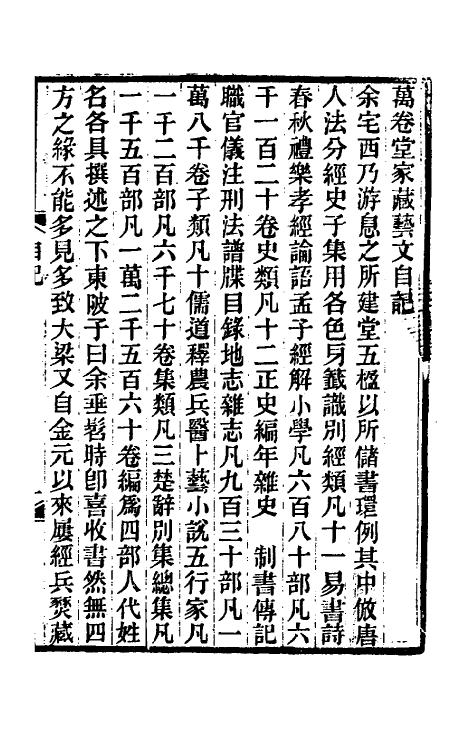 萬卷堂家藏藝文自記
余宅西乃游息之所建堂五楹以所儲書環例其中倣唐
人法分經史子集用各色牙籤識別經類凡十一易書詩
春秋禮樂孝經論語孟子經解小學凡六百八十部凡六
千一百二十卷史類凡十二正史編年雜史　制書傳記
職官儀注刑法譜牒目錄地志雜志凡九百三十部凡一
萬八千卷子類凡十儒道釋農兵醫卜藝小說五行家凡
一千二百部凡六千七十卷集類凡三楚辭別集總集凡
一千五百部凡一萬二千五百六十卷編爲四部人代姓
名各具撰述之下東陂子曰余垂髫時卽喜收書然無四
方之緣不能多見多致大梁又自金元以來屢經兵燹藏
自記
一